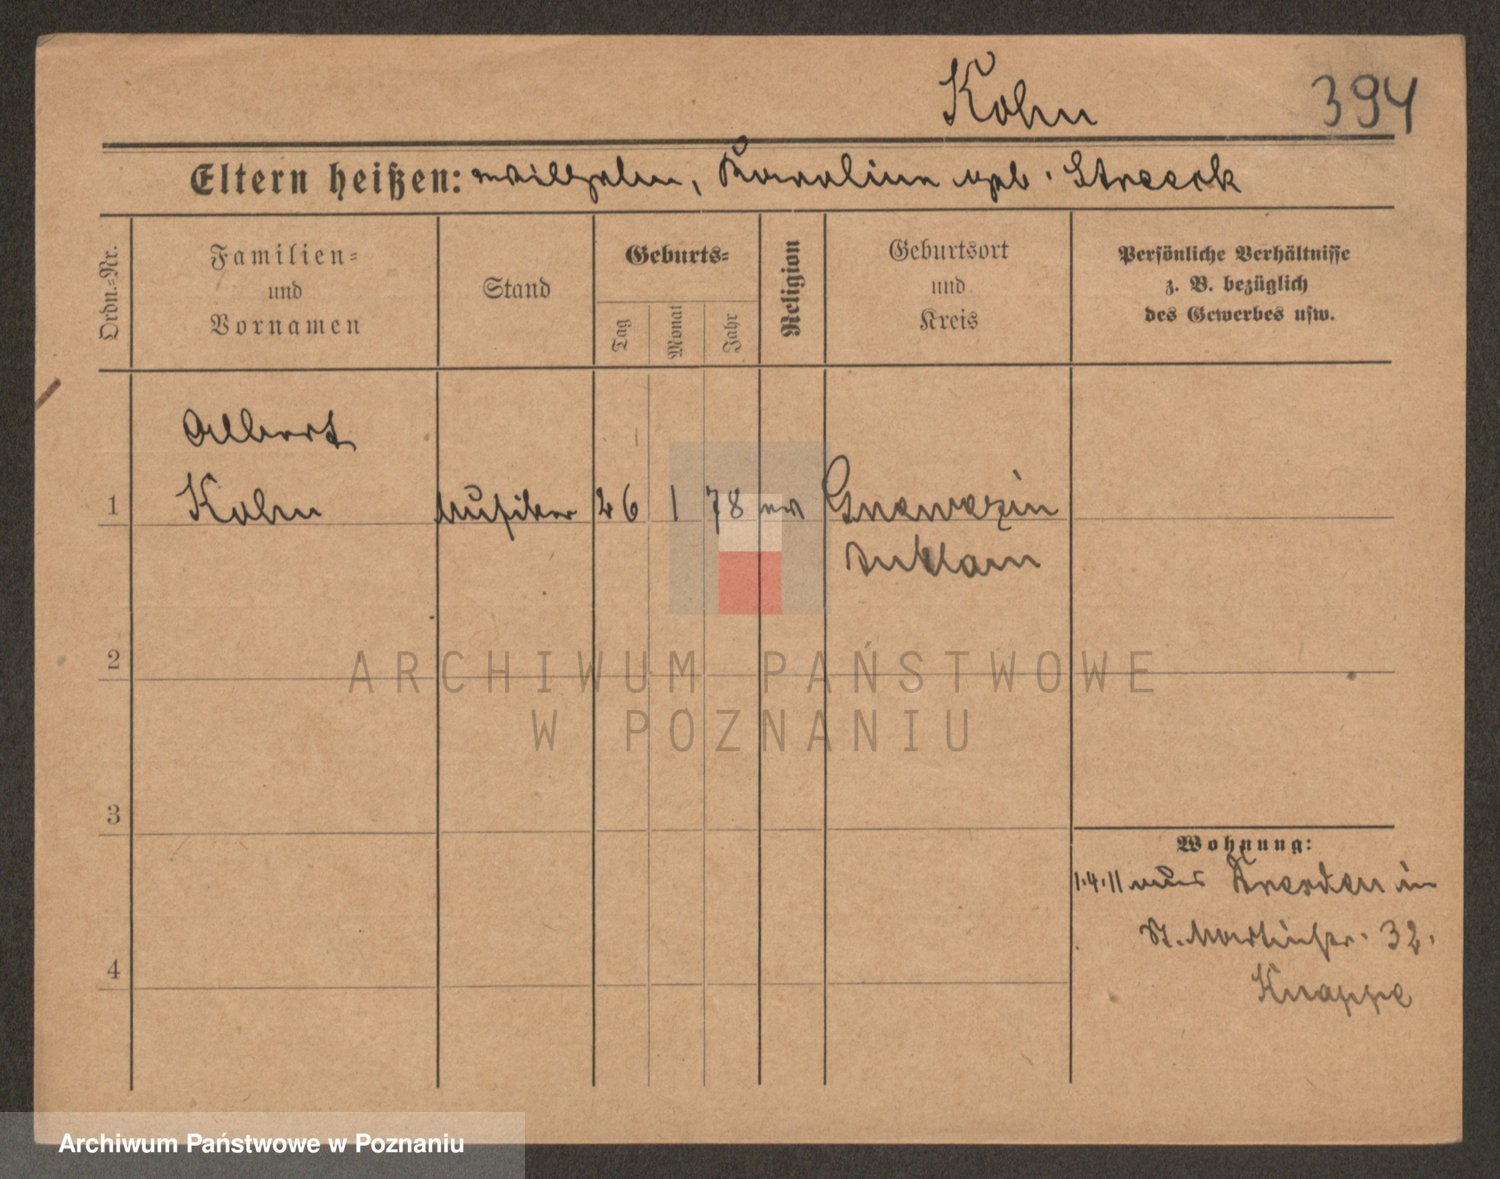 Kohn 394
Eltern heißen: Wilhelm, Karoline geb. Streeck
Ordn.-Nr.
Familien-
und
Vornamen
Stand
Geburts-
Tag
Monat
Jahr
Religion
Geburtsort
und
Kreis
Persönliche Verhältnisse
z. B. bezüglich
des Gewerbes usw.
Albert
1 Kohn Musiker 26 1 78 ev Gnevezin
Anklam
2
ARCHIWUM PAŃSTWOWE
W POZNANIU
3
Wohnung:
1.4.11 aus Dresden in
St. Martinstr. 32.
4
Knappe
Archiwum Państwowe w Poznaniu